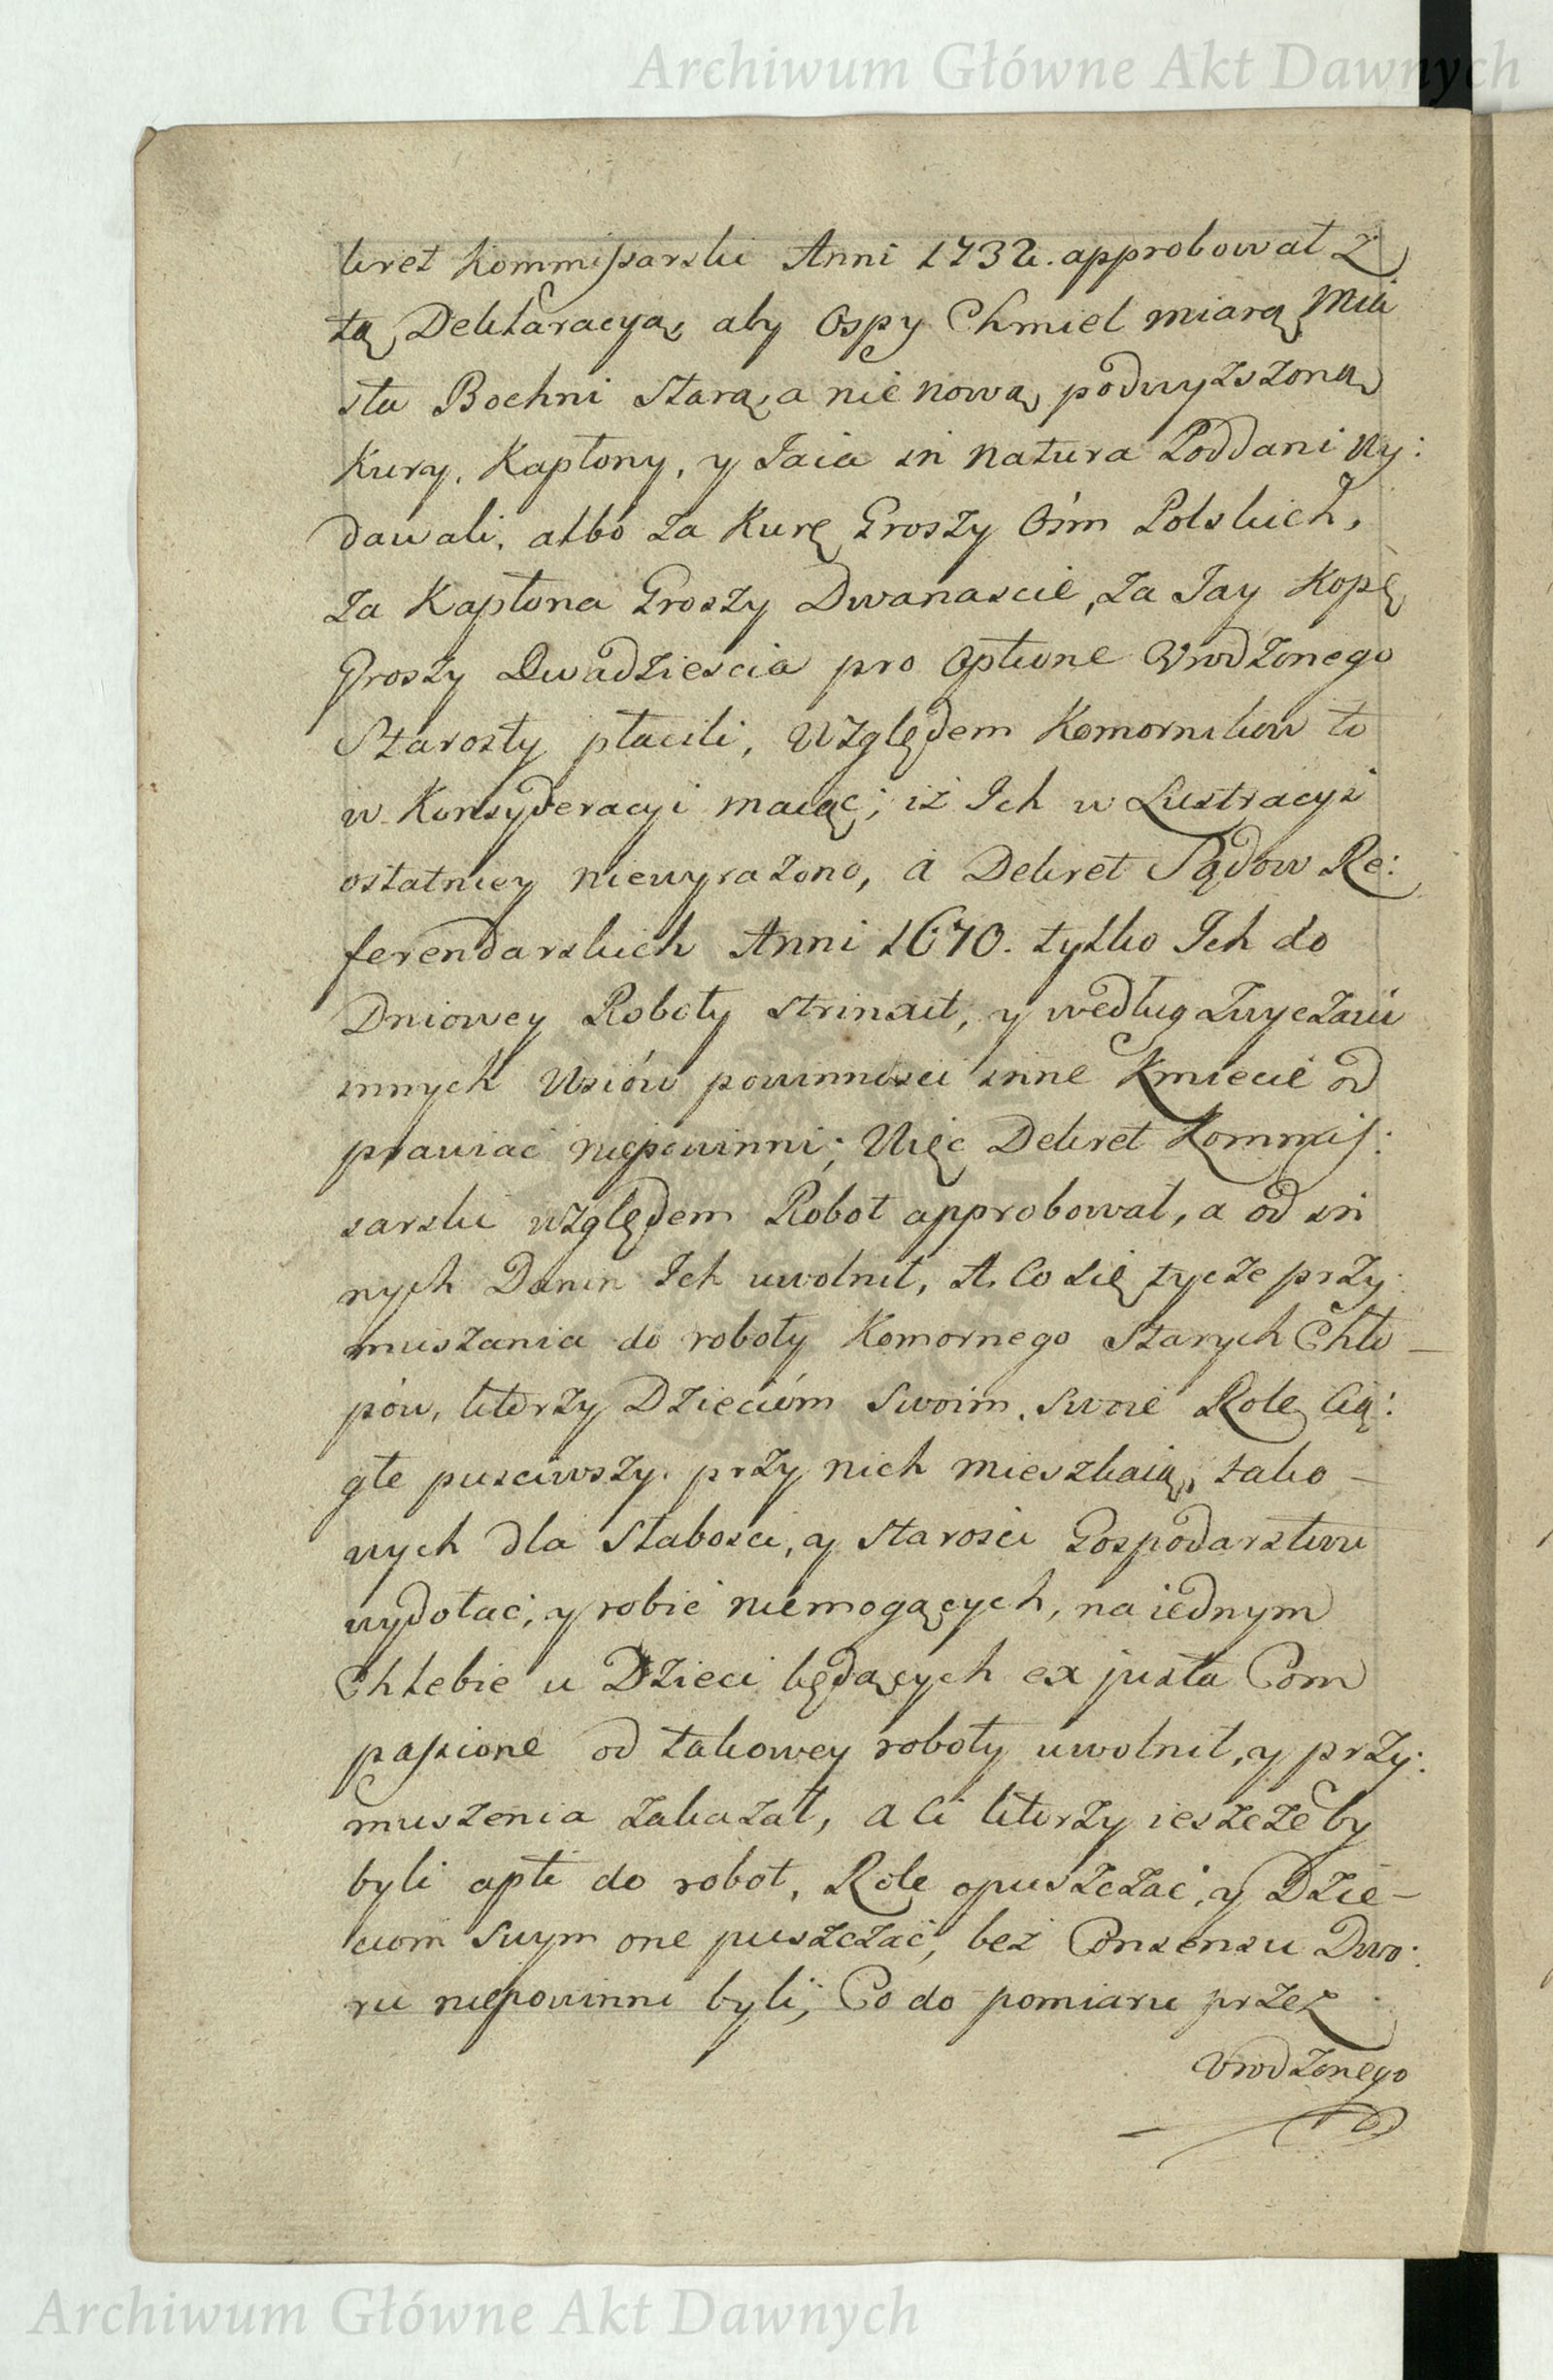 Archiwum Główne Akt Dawnych
kret Kommissarski Anni 1732. approbował z
tą Deklaracyą, aby Ospy Chmiel miarą Mia
sta Bochni starą, a nie nową podwyzszoną
Kury, Kapłony, y Iaia in natura Poddani wy:
dawali, albo za Kurę Groszy Ośm Polskich,
za Kapłona Groszy Dwanascie, za Jay Kopę
Groszy Dwadziescia pro optione Vrodzonego
Starosty płacili, Względem Komornikow to
w Konsyderacyi maiąc; iż Ich w Lustracyi
ostatniey niewyrazono, a Dekret Sądow Re:
ferendarskich Anni 1670. tylko Ich do
Dniowey Roboty strinxit, y według Zwyczaiu
innych Wsiów powinności inne Kmiecie od
prawiać niepowinni; Więc Dekret Kommis:
sarski względem Robot approbował, a od in
nych Danin Ich uwolnił, A. Co się tycze przy:
muszania do roboty Komornego Starych Chło –
pów, którzy Dzieciom swoim, swoie Role Cią:
głe pusciwszy przy nich mieszkaią, tako –
wych dla słabosci, y starości Gospodarstwu
wydołać, y robić niemogących, na iednym
Chlebie u Dzieci będących ex justa Com
passione od takowey roboty uwolnił, y przy:
muszenia zakazał, a Ci którzy ieszcze by
byli apti do robot, Role opuszczać, y Dzie –
ciom swym one puszczać, bez Consensu Dwo:
ru niepowinni byli, Co do pomiaru przez
Vrodzonego
Archiwum Główne Akt Dawnych